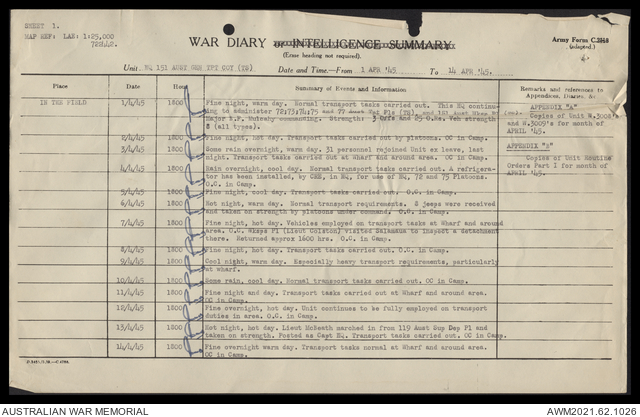 SHEET 1.
MAP REF: LAE: 1:25,000
722442.
WAR DIARY or INTELLIGENCE SUMMARY
(Erase heading not required).
Army Form C.2118
(adapted.)
Unit. HQ 151 AUST GEN TPT COY (TB) Date and Time.—From 1 APR '45 To 14 APR '45.
Place Date Hour Summary of Events and Information Remarks and references to Appendices, Diaries, &c.
IN THE FIELD 1/4/45 1800 Fine night, warm day. Normal transport tasks carried out. This HQ continu-
ing to administer 72;73;74;75 and 77 Pls (TB), and 183 Aust
Major L.F. Mulcahy commanding. Strength: 3 Offs and 25 O.Rs. Veh strength
8 (all types).
APPENDIX "A"
Copies of Unit W.3008's
and W.3009's for month of
APRIL '45.
2/4/45 1800 Fine night, hot day. Transport tasks carried out by platoons. OC in Camp.
3/4/45 1800 Some rain overnight, warm day. 31 personnel rejoined Unit ex leave, last
night. Transport tasks carried out at Wharf and around area. OC in Camp.
APPENDIX "B"
Copies of Unit Routine
Orders Part I for month of
APRIL '45.
4/4/45 1800 Rain overnight, cool day. Normal transport tasks carried out. A refrigera-
tor has been installed, by CRE, in HQ, for use of HQ, 72 and 75 Platoons.
O.C. in Camp.
5/4/45 1800 Fine night, cool day. Transport tasks carried out. O.C. in Camp.
6/4/45 1800 Hot night, warm day. Normal transport requirements. 2 jeeps were received
and taken on strength by platoons under command. O.C. in Camp.
7/4/45 1800 Fine night, hot day. Vehicles employed on tasks at Wharf and around
area. O.C. Wksps Pl (Lieut Colston) visited Salamaua to inspect a detachment
there. Returned approx 1600 hrs. O.C. in Camp.
8/4/45 1800 Fine night, hot day. Transport tasks carried out. O.C. in Camp.
9/4/45 1800 Cool night, warm day. Especially heavy transport requirements, particularly
at wharf.
10/4/45 1800 Some rain, cool day. Normal transport tasks carried out. OC in Camp.
11/4/45 1800 Fine night and day. Transport tasks carried out at Wharf and around area.
OC in Camp.
12/4/45 1800 Fine overnight, hot day. Unit continues to be fully employed on transport
duties in area. O.C. in Camp.
13/4/45 1800 Hot night, hot day. Lieut McBeath marched in from 119 Aust Sup Dep Pl and
taken on strength. Posted as Capt HQ. Transport tasks carried out. OC in Camp.
14/4/45 1800 Fine overnight warm day. Transport tasks normal at Wharf and around area.
OC in Camp.
AUSTRALIAN WAR MEMORIAL
AWM2021.62.1026